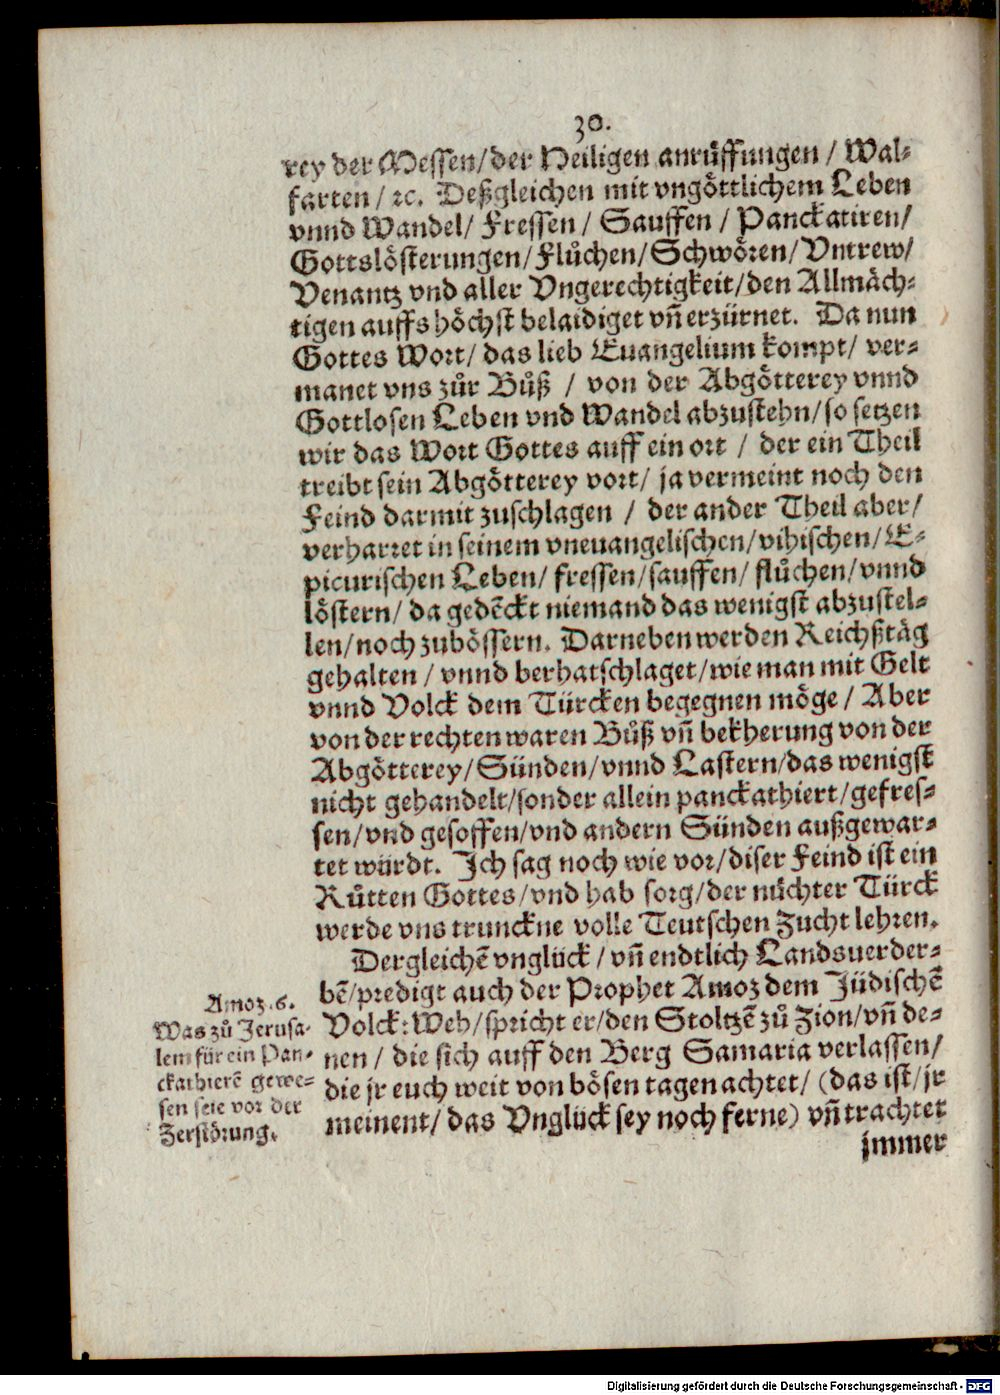 30.
rey der Messen/der Heiligen anrůffungen / Wal-
farten / ꝛc. Deßgleichen mit vngöttlichem Leben
vnnd Wandel/ Fressen / Sauffen / Panckatiren/
Gottslösterungen/Flůchen/Schwören/Vntrew/
Venantz vnd aller Vngerechtigkeit/den Allmäch-
tigen auffs höchst belaidiget vñ erzürnet. Da nun
Gottes Wort/ das lieb Euangelium kompt/ ver-
manet vns zůr Bůß / von der Abgötterey vnnd
Gottlosen Leben vnd Wandel abzustehn/so setzen
wir das Wort Gottes auff ein ort / der ein Theil
treibt sein Abgötterey vort/ ja vermeint noch den
Feind darmit zuschlagen / der ander Theil aber/
verharret in seinem vneuangelischen/vihischen/E-
picurischen Leben/ fressen/sauffen/ flůchen/vnnd
löstern/ da gedẽckt niemand das wenigst abzustel-
len/noch zubössern. Darneben werden Reichßtäg
gehalten / vnnd berhatschlaget/wie man mit Gelt
vnnd Volck dem Türcken begegnen möge / Aber
von der rechten waren Bůß vñ bekherung von der
Abgötterey/Sünden/vnnd Lastern/das wenigst
nicht gehandelt/sonder allein panckathiert/gefres-
sen/vnd gesoffen/vnd andern Sünden außgewar-
tet würdt. Ich sag noch wie vor/diser Feind ist ein
Růtten Gottes/vnd hab sorg/der nůchter Türck
werde vns trunckne volle Teutschen Zucht lehren.
Dergleichẽ vnglück / vñ endtlich Landsuerder-
bẽ/predigt auch der Prophet Amoz dem Jüdischẽ
Volck: Weh/spricht er/den Stoltzẽ zů Zion/vñ de-
nen / die sich auff den Berg Samaria verlassen/
die jr euch weit von bösen tagen achtet/ (das ist/jr
meinent/ das Vnglück sey noch ferne) vñ trachtet
jmmer
Amoz. 6.
Was zů Jerusa-
lem für ein Pan-
ckathierẽ gewe-
sen seie vor der
Zerstörung.
Digitalisierung gefördert durch die Deutsche Forschungsgemeinschaft - DFG